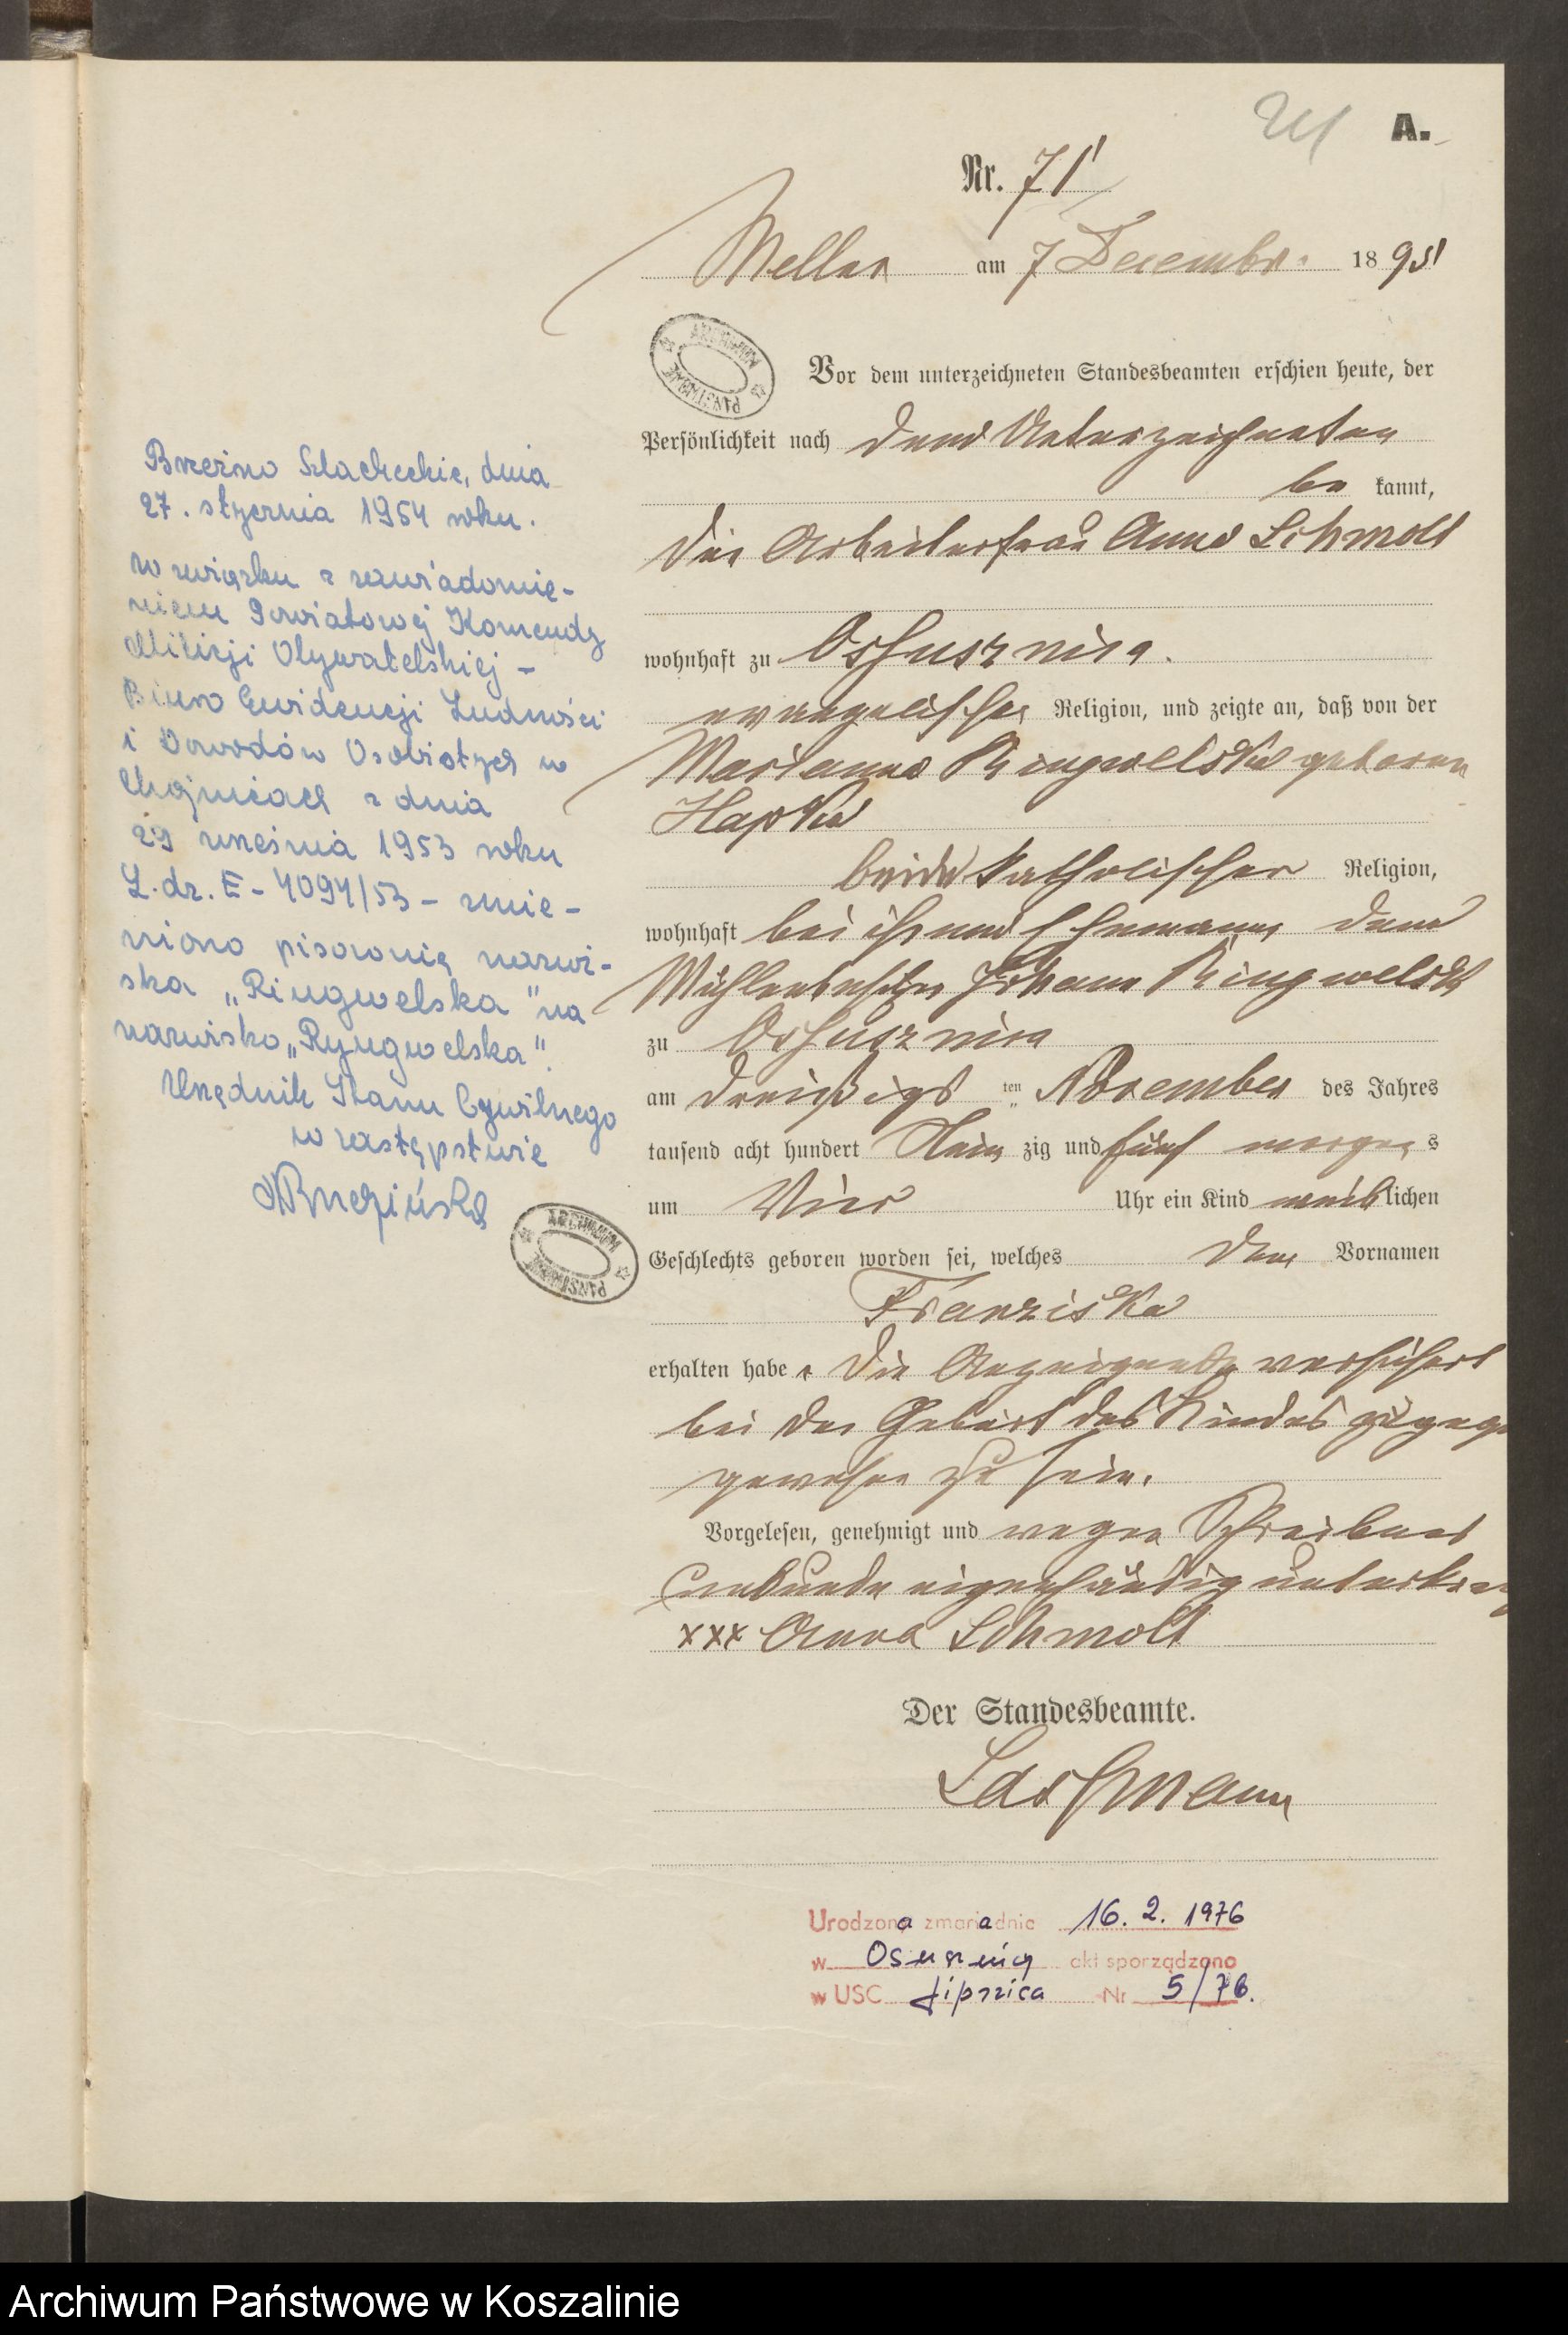 A.
Nr. 71
Mellen am 7 Decembr. 1895
ARCHIWUM PAŃSTWOWE
Vor dem unterzeichneten Standesbeamten erschien heute, der
Persönlichkeit nach dem Unterzeichneten
be kannt,
die Arbeiterfrau Anna Schmolt
wohnhaft zu Oschusznica.
evangelischer Religion, und zeigte an, daß von der
Marianna Ringwelska geborenen
Hapka
beide katholischer Religion,
wohnhaft bei ihrem Ehemann dem
Mühlenbesitzer Johann Ringwelski
zu Oschusznica
am dreißigs ten November des Jahres
tausend acht hundert Neun zig und fünf morgens
um Vier Uhr ein Kind weiblichen
Geschlechts geboren worden sei, welches den Vornamen
Franziska
erhalten habe. Die Anzeigende versichert
bei der Geburt des Kindes zugege
gewesen zu sein.
Vorgelesen, genehmigt und wegen Schreibens
unkunde eigenhändig unterkreuz
xxx Anna Schmolt
Der Standesbeamte.
Laschmann
Brzeźno Szlacheckie, dnia
27. stycznia 1954 roku.
W związku z zawiadomie-
niem Powiatowej Komendy
Milicji Obywatelskiej -
Biuro Ewidencji Ludności
i Dowodów Osobistych w
Chojnicach z dnia
29 września 1953 roku
L.dz. E-4094/53 - zmie-
niono pisownię nazwi-
ska „Ringwelska" na
nazwisko „Ryngwelska".
Urzędnik Stanu Cywilnego
w zastępstwie
ARCHIWUM PAŃSTWOWE
Urodzona zmarła dnia 16. 2. 1976
w Osusznicy akt sporządzono
w USC Lipnica Nr 5/76.
Archiwum Państwowe w Koszalinie